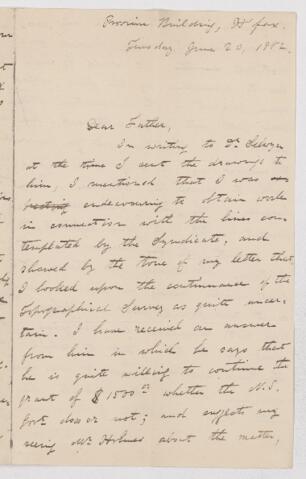 Province Building, H'fax.
Tuesday June 20, 1882.
Dear Father,
In writing to Dr. Selwyn
at the time I sent the drawings to
him, I mentioned that I was
endeavouring to obtain work
in connection with the lines con-
templated by the Syndicate, and
showed by the tone of my letter that
I looked upon the continuance of the
Topographical Survey as quite uncer-
tain. I have received an answer
from him in which he says that
he is quite willing to continue the
grant of $1500 00 whether the N.S.
Govt. does or not; and suggests my
seeing Mr. Holmes about the matter,